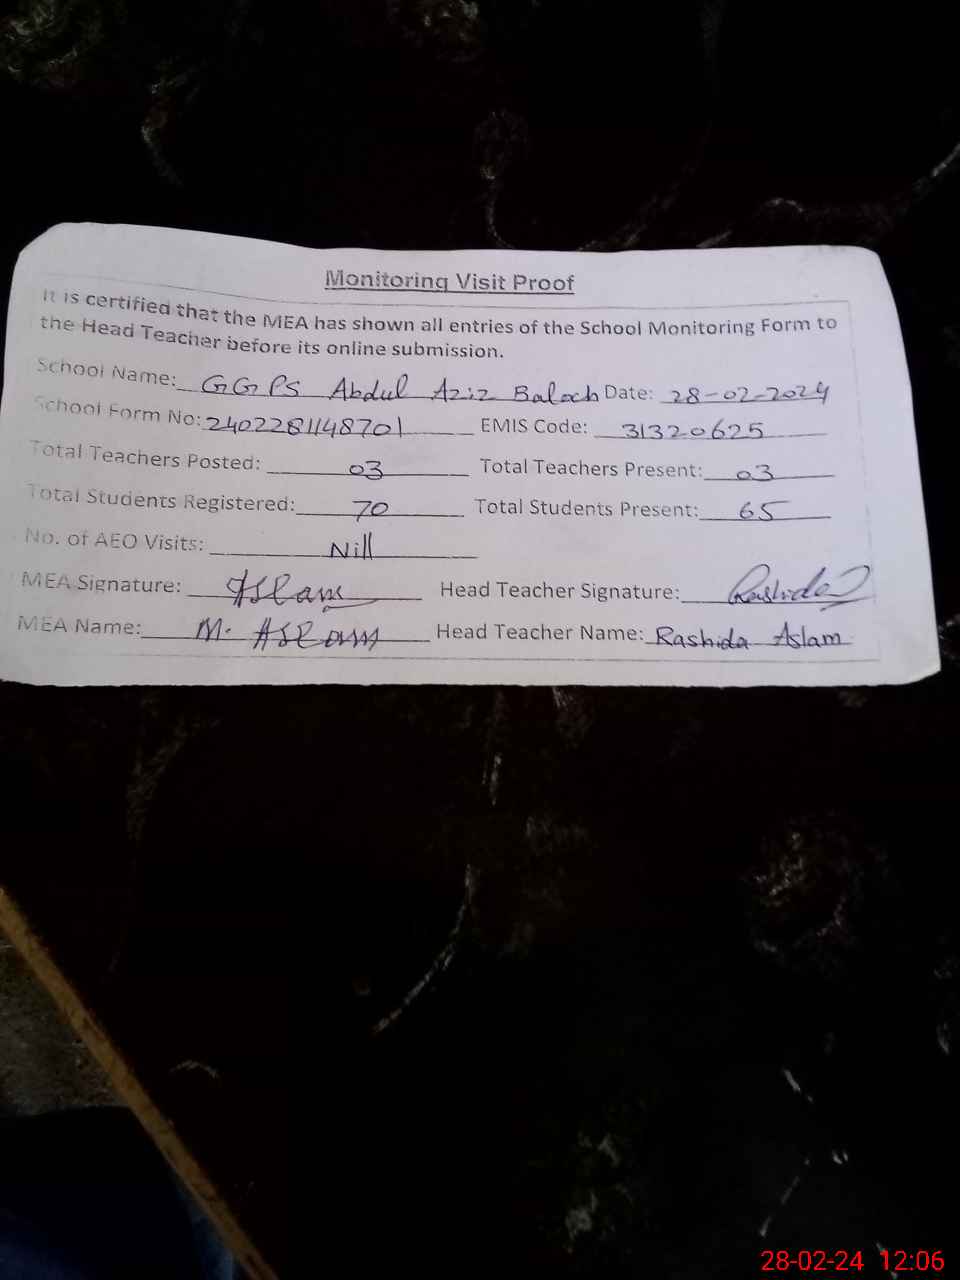 Monitoring Visit Proof
It is certified that the MEA has shown all entries of the School Monitoring Form to
the Head Teacher before its online submission.
School Name: GGPS Abdul Aziz Baloch Date: 28-02-2024
School Form No: 2402281148701 EMIS Code: 31320625
Total Teachers Posted: 03 Total Teachers Present: 03
Total Students Registered: 70 Total Students Present: 65
No. of AEO Visits: Nill
MEA Signature: Aslam Head Teacher Signature: Rashida
MEA Name: M. Aslam Head Teacher Name: Rashida Aslam
28-02-24 12:06